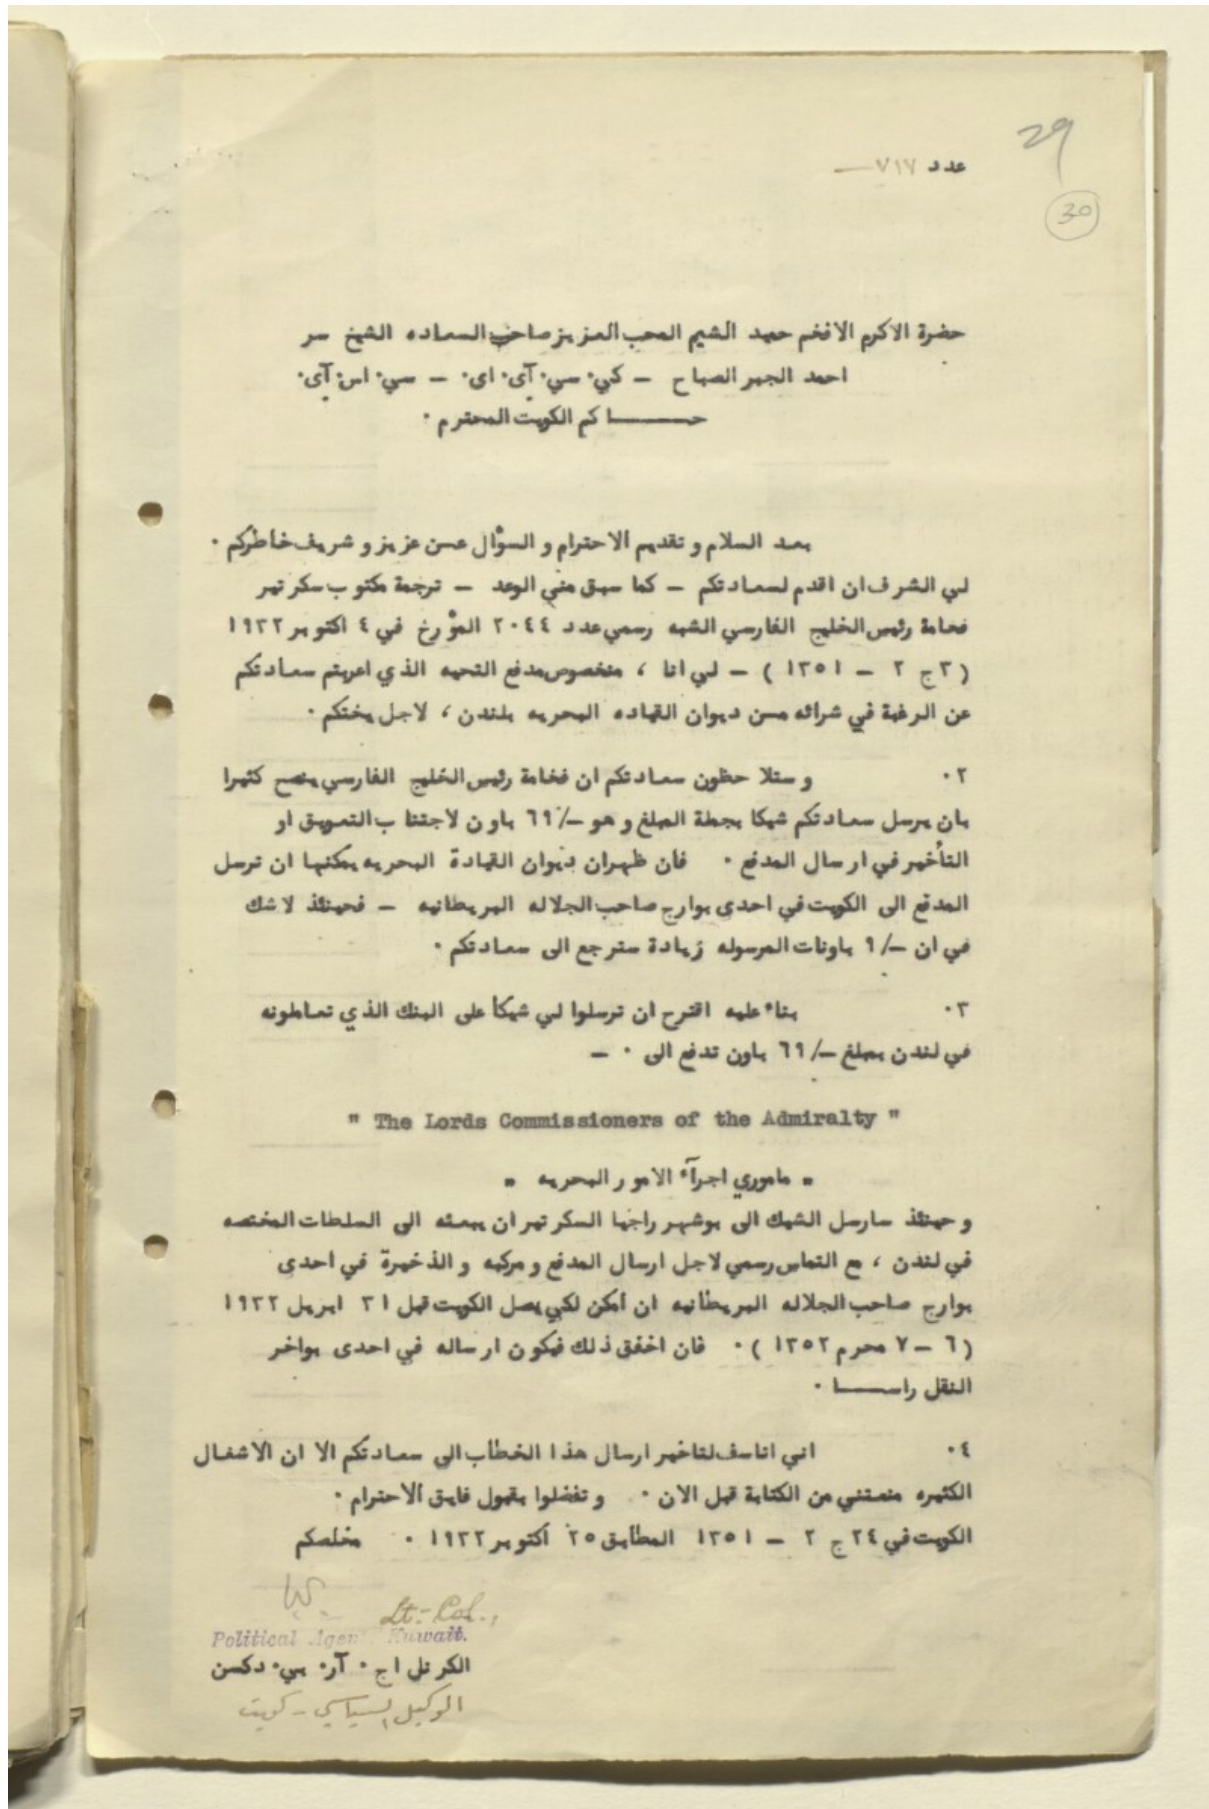 29
عدد ٧١٧ —
30
حضرة الاكرم الافخم حميد الشيم المحب العزيز صاحب السعاده الشيخ سر
احمد الجبر الصباح – كي٠ سي٠ آي٠ اي٠ – سي٠ اس٠ آي٠
حـــــاكم الكويت المحترم ٠
بعد السلام و تقديم الاحترام و السوٴال عن عزيز و شريف خاطركم ٠
لي الشرف ان اقدم لسعادتكم – كما سبق مني الوعد – ترجمة مكتوب سكرتير
فخامة رئيس الخليج الفارسي الشبه رسمي عدد ٢٠٤٤ الموٴرخ في ٤ اكتوبر ١٩٣٢
(٣ ج ٢ – ١٣٥١) – لي انا ، منخصوص مدفع التحيه الذي اعربتم سعادتكم
عن الرغبة في شرائه من ديوان القياده البحريه بلندن ، لاجل يختكم ٠
٢٠ و ستلاحظون سعادتكم ان فخامة رئيس الخليج الفارسي ينصح كثيرا
بان يرسل سعادتكم شيكا بجملة المبلغ و هو –/٦٩ باون لاجتناب التعويق او
التأخير في ارسال المدفع ٠ فان ظهران ديوان القيادة البحريه يمكنها ان ترسل
المدفع الى الكويت في احدى بوارج صاحب الجلاله البريطانيه – فحينئذ لا شك
في ان –/٩ باونات المرسوله زيادة سترجع الى سعادتكم ٠
٣٠ بناء عليه اقترح ان ترسلوا لي شيكاً على البنك الذي تعاملونه
في لندن بمبلغ –/٦٩ باون تدفع الى ٠ –
" The Lords Commissioners of the Admiralty "
" ماموري اجرآء الامور البحريه "
و حينئذ سارسل الشيك الى بوشهر راجيا السكرتير ان يبعثه الى السلطات المختصه
في لندن ، مع التماس رسمي لاجل ارسال المدفع و مركبه و الذخيرة في احدى
بوارج صاحب الجلاله البريطانيه ان أمكن لكي يصل الكويت قبل ٣١ ابريل ١٩٣٣
(٦ – ٧ محرم ١٣٥٢) ٠ فان اخفق ذلك فيكون ارساله في احدى بواخر
النقل راســـا ٠
٤٠ اني اتاسف لتاخير ارسال هذا الخطاب الى سعادتكم الا ان الاشغال
الكثيره منعتني من الكتابة قبل الان ٠ و تفضلوا بقبول فايق الاحترام ٠
الكويت في ٢٤ ج ٢ – ١٣٥١ المطابق ٢٥ أكتوبر ١٩٣٢ ٠ مخلصكم
Lt.-Col.,
Political Agent, Kuwait.
الكرنل اچ ٠ آر٠ پي٠ دكسن
الوكيل السياسي - كويت